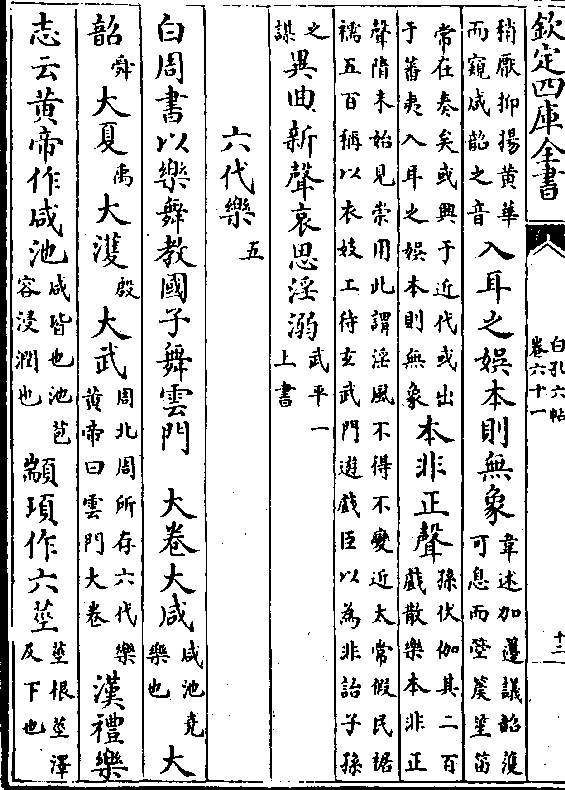 欽定四庫全書
白孔六帖
卷六十一
十三
稍厭抑揚黃華而窺咸韶之音入耳之娛本則無象韋述加籩議韶濩可息而箜篌笙笛
常在奏矣或興于近代或出于蕃夷入耳之娛本則無象本非正聲孫伏伽其二百戲散樂本非正
聲隋末始見崇用此謂淫風不得不變近太常假民裾襦五百稱以衣妓工待玄武門遊戲臣以為非詒子孫
之謀異曲新聲哀思淫溺武平一上書
六代樂五
白周書以樂舞教國子舞雲門 大卷大咸咸池堯樂也大
韶舜大夏禹大濩殷大武周北周所存六代樂黃帝曰雲門大卷漢禮樂
志云黃帝作咸池咸皆也池苞容浸潤也顓頊作六莖莖根莖澤及下也